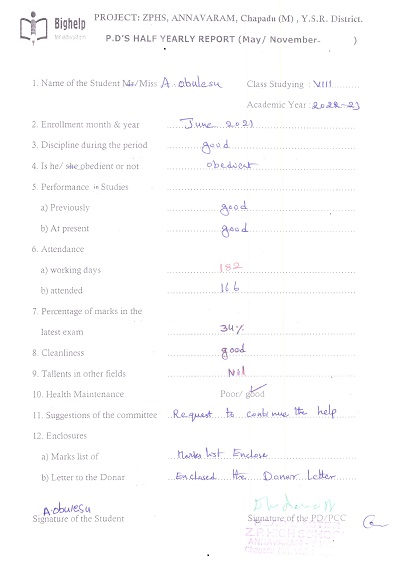 Bighelp
for education
PROJECT: ZPHS, ANNAVARAM, Chapadu (M) , Y.S.R. District.
P.D'S HALF YEARLY REPORT (May/ November- )
1. Name of the Student Mr/Miss A. obulesu Class Studying : VIII
Academic Year : 2022-23
2. Enrollment month & year June 2021
3. Discipline during the period good
4. Is he/ she obedient or not obedient
5. Performance in Studies
a) Previously good
b) At present good
6. Attendance
a) working days 182
b) attended 166
7. Percentage of marks in the
latest exam 34%
8. Cleanliness good
9. Tallents in other fields Nil
10. Health Maintenance Poor/ good
11. Suggestions of the committee Request to continue the help
12. Enclosures
a) Marks list of Marks list Enclose
b) Letter to the Donar Enclosed the Donar Letter
A.obulesu
Signature of the Student Signature of the PD/PCC